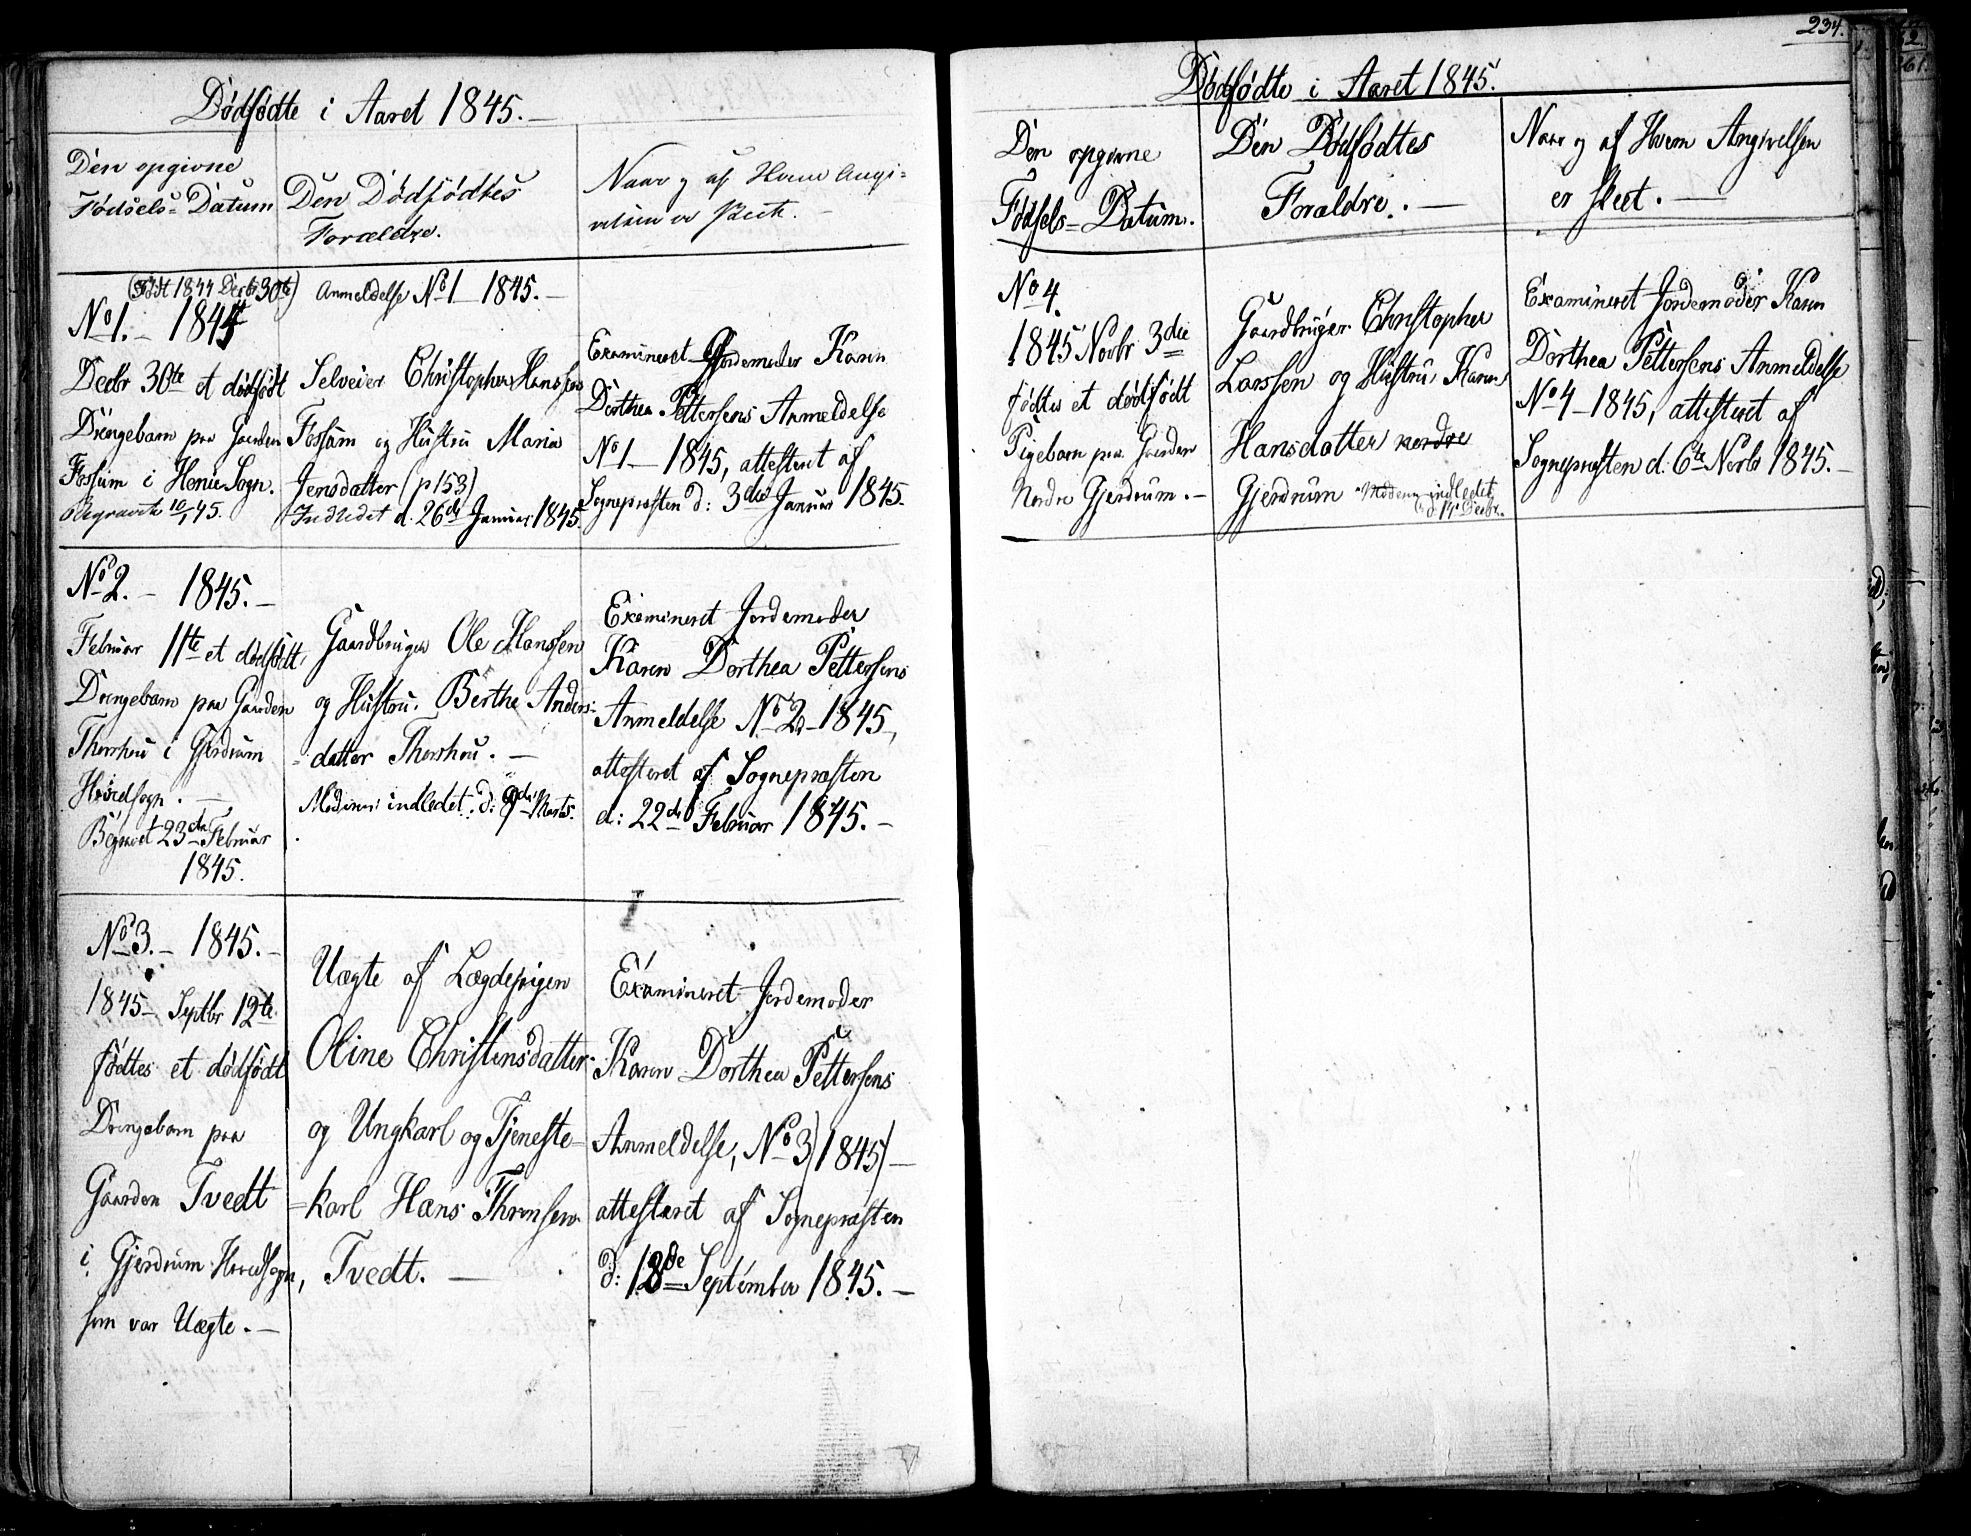 Dødfødte i Aaret 1845.—
Den opgivne
Fødsels-Datum
Den Dødfødtes
Forældre.
Naar og af Hvem Angi-
velsen er skeet.—
(Født 1844 Decbr 30te)
No 1.- 1844
Decbr 30te et dødfødt
Drengebarn paa Gaarden
Fossum i Sogn.
Begravet 10/1 45.
Anmeldelse No 1 1845.—
Selveier Christopher Hanssen
Fossum og Hustru Maria
Jensdatter (p 153)
Indledet d. 26de Januar 1845.
Examineret Jordemoder Karen
Dorthea Pettersens Anmeldelse
No 1 - 1845, attesteret af
Sognepræsten d: 3die Januar 1845.
No 2.- 1845.-
Februar 11te et dødfødt
Drengebarn paa Gaarden
Thorshou i Gjerdrum
Hovedsogn.—
Begravet 23de Februar
1845.
Gaardbruger Ole Hanssen
og Hustru Berthe Anders-
=datter Thorshou.—
Moderen indledet d: 9de Marts.
Examineret Jordemoder
Karen Dorthea Pettersens
Anmeldelse No 2 - 1845,
attesteret af Sognepræsten
d: 22de Februar 1845.-
No 3.- 1845.-
1845 - Septbr 12te
fødtes et dødfødt
Drengebarn paa
Gaarden Tvedt
i Gjerdrum Hovedsogn,
som var Uægte.—
Uægte af Lægdepigen
Oline Christensdatter
og Ungkarl og Tjeneste-
=karl Hans
Tvedt.—
Examineret Jordemoder
Karen Dorthea Pettersens
Anmeldelse, No 3) 1845)—
attesteret af Sognepræsten
d: 18de September 1845.—
234.
Dødfødte i Aaret 1845.
Den opgivne
Fødsels-Datum.
Den Dødfødtes
Forældre.—
Naar og af Hvem Angivelsen
er skeet.—
No 4.
1845 Novbr 3die
fødtes et dødfødt
Pigebarn paa Gaarden
Nordre Gjerdrum.-
Gaardbruger Christopher
Larssen og Hustru Karen
Hansdatter nordre
Gjerdrum Moderen indledet
d 14 Decbr.
Examineret Jordemoder Karen
Dorthea Pettersens Anmeldelse
No 4 - 1845, attesteret af
Sognepræsten d: 6te Novbr 1845.-